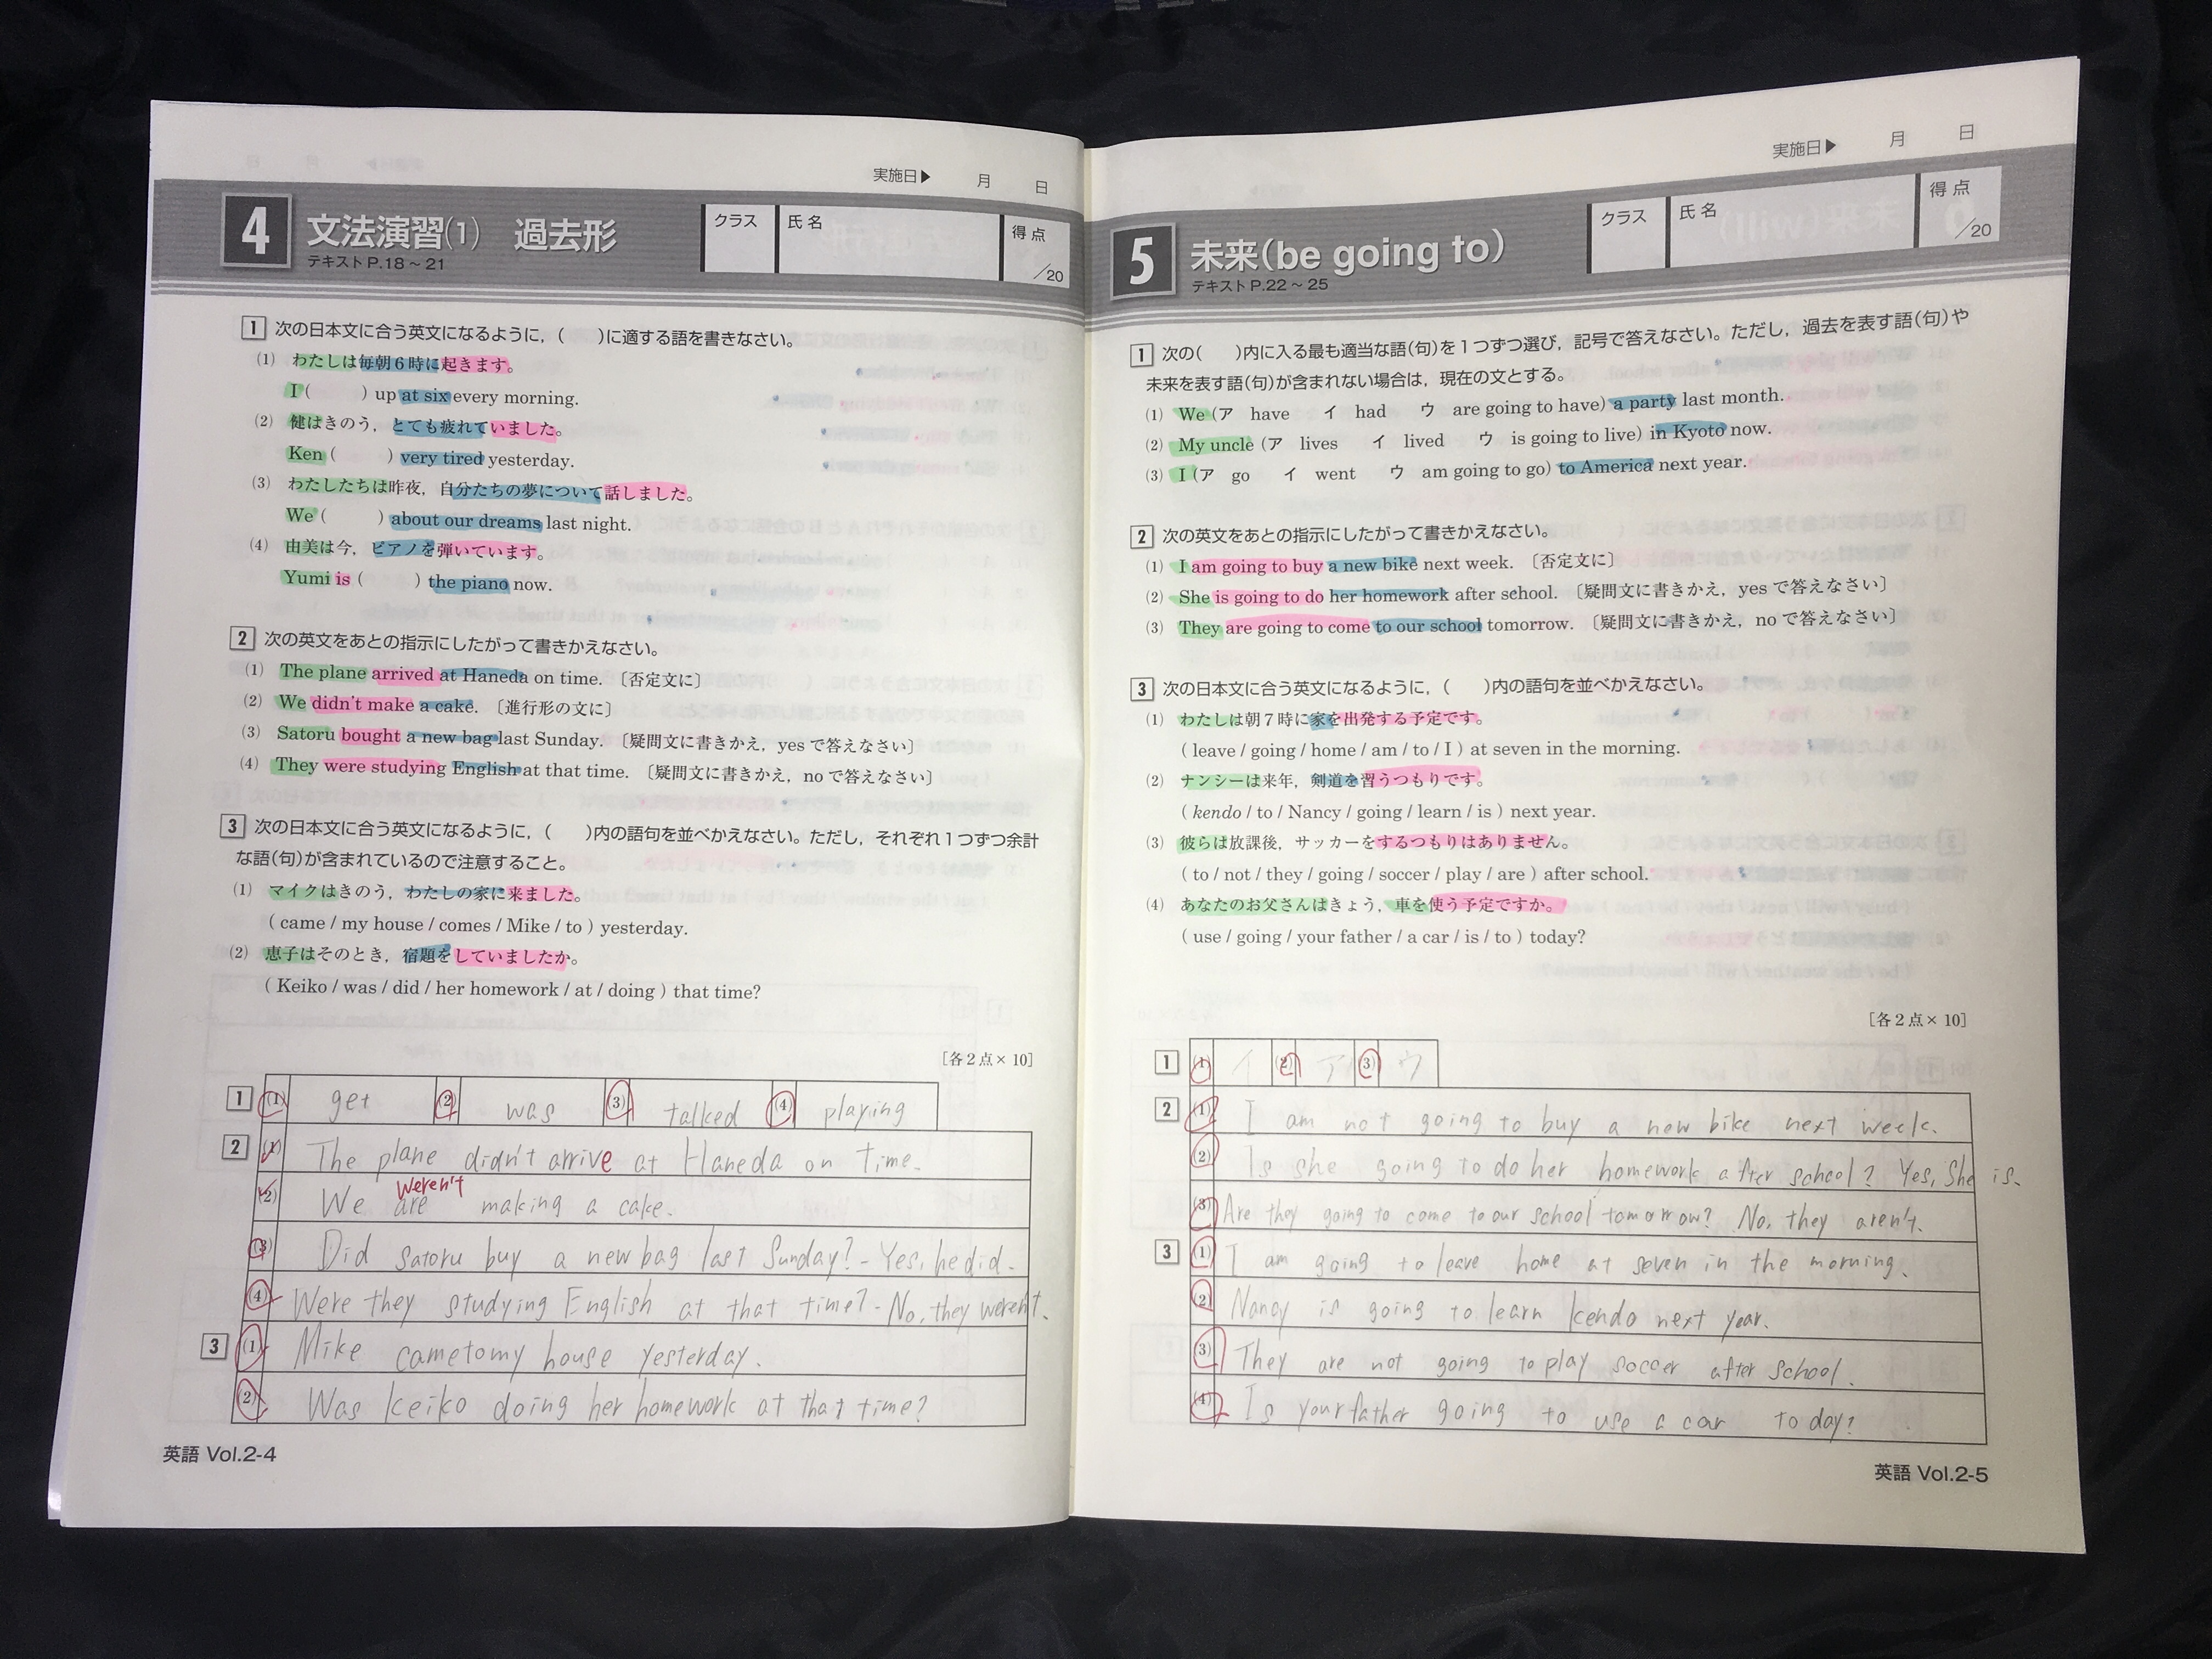 実施日▶ 月 日
4 文法演習(1) 過去形
テキストP.18～21
クラス 氏名 得点 /20
1 次の日本文に合う英文になるように，( )に適する語を書きなさい。
(1) わたしは毎朝6時に起きます。
I ( ) up at six every morning.
(2) 健はきのう，とても疲れていました。
Ken ( ) very tired yesterday.
(3) わたしたちは昨夜，自分たちの夢について話しました。
We ( ) about our dreams last night.
(4) 由美は今，ピアノを弾いています。
Yumi is ( ) the piano now.
2 次の英文をあとの指示にしたがって書きかえなさい。
(1) The plane arrived at Haneda on time. 〔否定文に〕
(2) We didn't make a cake. 〔進行形の文に〕
(3) Satoru bought a new bag last Sunday. 〔疑問文に書きかえ，yesで答えなさい〕
(4) They were studying English at that time. 〔疑問文に書きかえ，noで答えなさい〕
3 次の日本文に合う英文になるように，( )内の語句を並べかえなさい。ただし，それぞれ1つずつ余計
な語(句)が含まれているので注意すること。
(1) マイクはきのう，わたしの家に来ました。
( came / my house / comes / Mike / to ) yesterday.
(2) 恵子はそのとき，宿題をしていましたか。
( Keiko / was / did / her homework / at / doing ) that time?
［各2点×10］
1 (1) get (2) was (3) talked (4) playing
2 (1) The plane didn't arrive at Haneda on time.
weren't
(2) We are making a cake.
(3) Did Satoru buy a new bag last Sunday? - Yes, he did.
(4) Were they studying English at that time? - No, they weren't.
3 (1) Mike came to my house yesterday.
(2) Was Keiko doing her homework at that time?
英語 Vol.2-4
実施日▶ 月 日
5 未来(be going to)
テキストP.22～25
クラス 氏名 得点 /20
1 次の( )内に入る最も適当な語(句)を1つずつ選び，記号で答えなさい。ただし，過去を表す語(句)や
未来を表す語(句)が含まれない場合は，現在の文とする。
(1) We (ア have イ had ウ are going to have) a party last month.
(2) My uncle (ア lives イ lived ウ is going to live) in Kyoto now.
(3) I (ア go イ went ウ am going to go) to America next year.
2 次の英文をあとの指示にしたがって書きかえなさい。
(1) I am going to buy a new bike next week. 〔否定文に〕
(2) She is going to do her homework after school. 〔疑問文に書きかえ，yesで答えなさい〕
(3) They are going to come to our school tomorrow. 〔疑問文に書きかえ，noで答えなさい〕
3 次の日本文に合う英文になるように，( )内の語句を並べかえなさい。
(1) わたしは朝7時に家を出発する予定です。
( leave / going / home / am / to / I ) at seven in the morning.
(2) ナンシーは来年，剣道を習うつもりです。
( kendo / to / Nancy / going / learn / is ) next year.
(3) 彼らは放課後，サッカーをするつもりはありません。
( to / not / they / going / soccer / play / are ) after school.
(4) あなたのお父さんはきょう，車を使う予定ですか。
( use / going / your father / a car / is / to ) today?
［各2点×10］
1 (1) イ (2) ア (3) ウ
2 (1) I am not going to buy a new bike next week.
(2) Is she going to do her homework after school? Yes, she is.
(3) Are they going to come to our school tomorrow? No, they aren't.
3 (1) I am going to leave home at seven in the morning.
(2) Nancy is going to learn kendo next year.
(3) They are not going to play soccer after school.
(4) Is your father going to use a car today?
英語 Vol.2-5